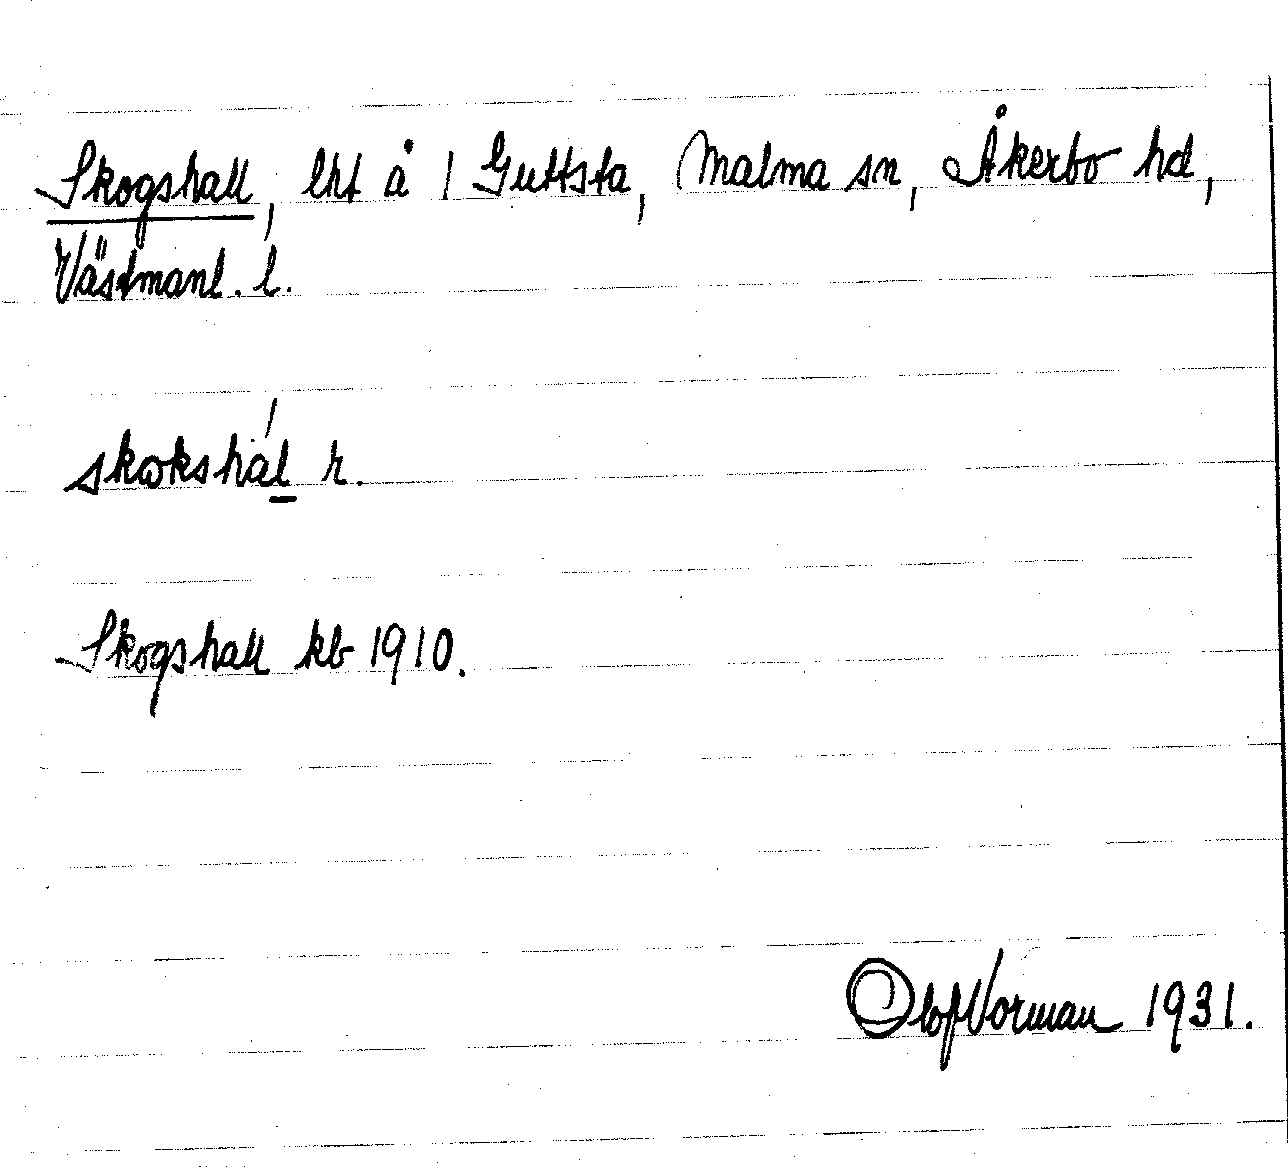 Skogshall, lht å 1 Guttsta, Malma sn, Åkerbo hd,
Västmanl. l.
skokshál r.
Skogshall kb 1910.
Olof Vorman 1931.